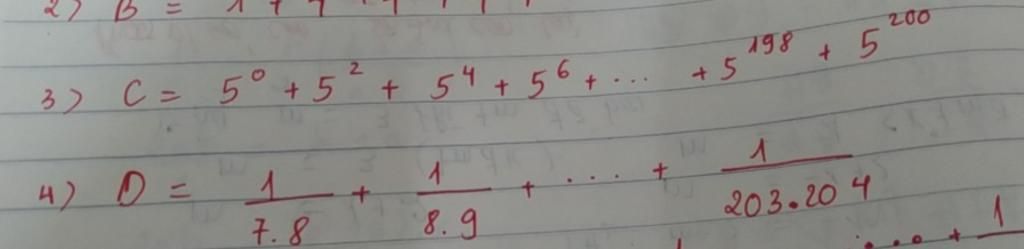 2) B = 1 + 7
3) C = 5⁰ + 5² + 5⁴ + 5⁶ + ... + 5¹⁹⁸ + 5²⁰⁰
4) D = 1/7.8 + 1/8.9 + ... + 1/203.204
... + 1